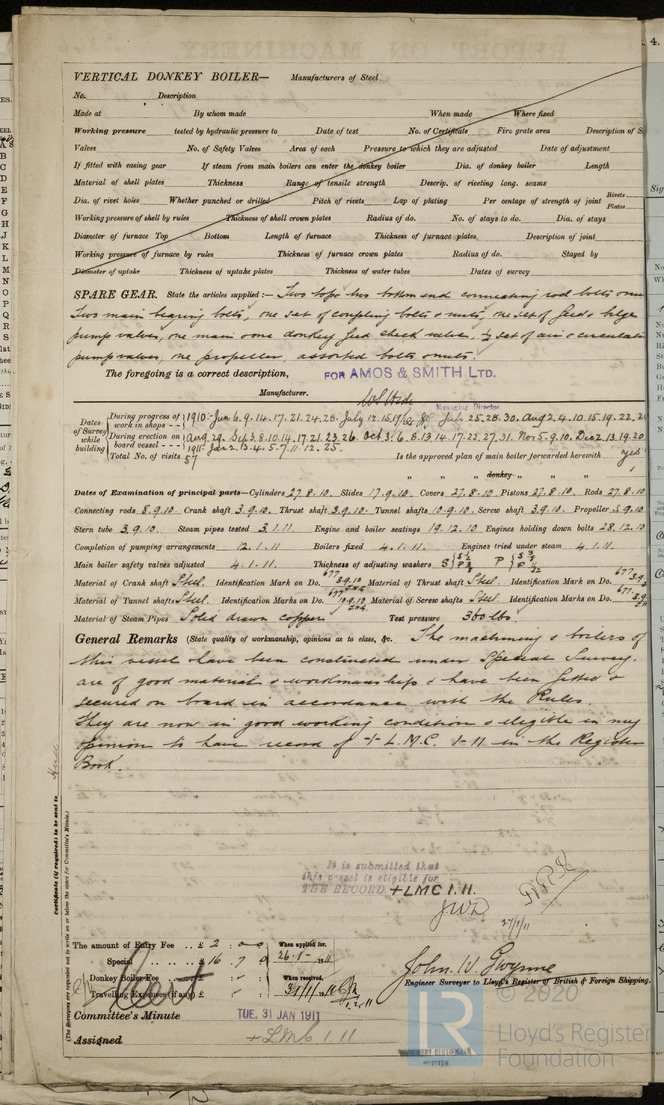 VERTICAL DONKEY BOILER— Manufacturers of Steel
No. Description
Made at By whom made When made Where fixed
Working pressure tested by hydraulic pressure to Date of test No. of Certificate Fire grate area Description of S
Valves No. of Safety Valves Area of each Pressure to which they are adjusted Date of adjustment
If fitted with easing gear If steam from main boilers can enter the donkey boiler Dia. of donkey boiler Length
Material of shell plates Thickness Range of tensile strength Descrip. of riveting long. seams
Dia. of rivet holes Whether punched or drilled Pitch of rivets Lap of plating Per centage of strength of joint Rivets Plates
Working pressure of shell by rules Thickness of shell crown plates Radius of do. No. of stays to do. Dia. of stays
Diameter of furnace Top Bottom Length of furnace Thickness of furnace plates Description of joint
Working pressure of furnace by rules Thickness of furnace crown plates Radius of do. Stayed by
Diameter of uptake Thickness of uptake plates Thickness of water tubes Dates of survey
SPARE GEAR. State the articles supplied:— Two top & two bottom end connecting rod bolts & nuts
Two main bearing bolts, one set of coupling bolts & nuts, one set of feed & bilge
pump valves, one main & one donkey feed check valve, ½ set of air & circulati
pump valves, one propeller, assorted bolts & nuts.
The foregoing is a correct description, FOR AMOS & SMITH LTD.
Manufacturer.
Managing Director.
Dates of Survey while building
During progress of work in shops - - 1910:- Jun 6. 9. 14. 17. 21. 24. 28. July 12. 15. 19. July 25. 28. 30. Aug 2. 4. 10. 15. 19. 22. 2
During erection on board vessel - - - Aug 29. Sep 3. 8. 10. 14. 17. 21. 23. 26. Oct 3. 6. 8. 13. 14. 17. 22. 27. 31. Nov 5. 9. 10. Dec 2. 13. 19. 20
1911:- Jan 2. 3. 4. 5. 7. 11. 12. 25.
Total No. of visits 57 Is the approved plan of main boiler forwarded herewith yes
" " " donkey " " "
Dates of Examination of principal parts—Cylinders 27.8.10. Slides 17.9.10. Covers 27.8.10 Pistons 27.8.10. Rods 27.8.10
Connecting rods 8.9.10. Crank shaft 3.9.10. Thrust shaft 3.9.10. Tunnel shafts 10.9.10. Screw shaft 3.9.10. Propeller 3.9.10
Stern tube 3.9.10. Steam pipes tested 3.1.11 Engine and boiler seatings 19.12.10 Engines holding down bolts 28.12.10
Completion of pumping arrangements 12.1.11 Boilers fixed 4.1.11. Engines tried under steam 4.1.11.
Main boiler safety valves adjusted 4.1.11. Thickness of adjusting washers
Material of Crank shaft Steel. Identification Mark on Do. 677 3.9.10 Material of Thrust shaft Steel. Identification Mark on Do. 677 3.9
Material of Tunnel shafts Steel. Identification Marks on Do. 677 Material of Screw shafts Steel. Identification Marks on Do. 677 3.9
Material of Steam Pipes Solid drawn copper Test pressure 360 lbs.
General Remarks (State quality of workmanship, opinions as to class, &c. The machinery & boilers of
this vessel have been constructed under Special Survey.
are of good material & workmanship & have been fitted &
secured on board in accordance with the Rules.
They are now in good working condition & eligible in my
opinion to have record of + L.M.C. 1-11 in the Register
Book.
Certificate (if required) to be sent to Hull
(The Surveyors are requested not to write on or below the space for Committee's Minute.)
It is submitted that
this vessel is eligible for
THE RECORD. + LMC 1. 11.
27/1/11
The amount of Entry Fee .. £ 2 : When applied for.
Special .. .. £ 16 . 7 26-1-11
Donkey Boiler Fee .. £ When received.
Travelling Expenses (if any) £ 31/1/11
John W. Gwynne
Engineer Surveyor to Lloyd's Register of British & Foreign Shipping.
Committee's Minute TUE. 31 JAN 1911
Assigned + LMC 1 11
© 2020
Lloyd's Register
Foundation